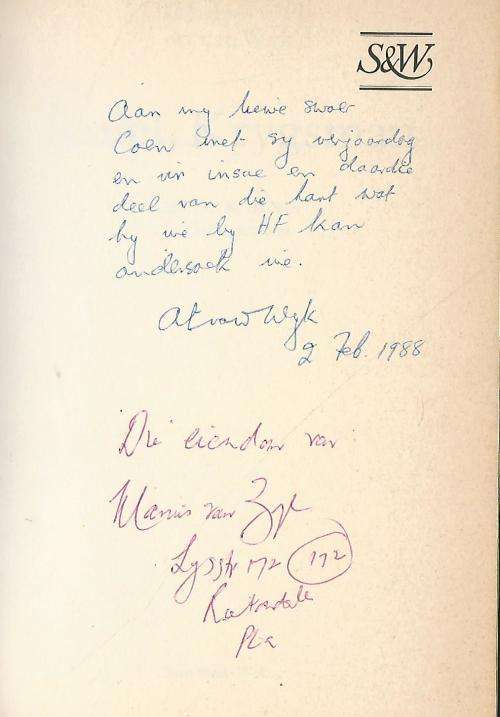 S&W
Aan my liewe swaer
Coen met sy verjaardag
en vir insae en daardie
deel van die hart wat
hy nie by HF kan
ondersoek nie.
At van Wyk
2 Feb. 1988
Die eiendom van
van Zyl
172 172
Pta